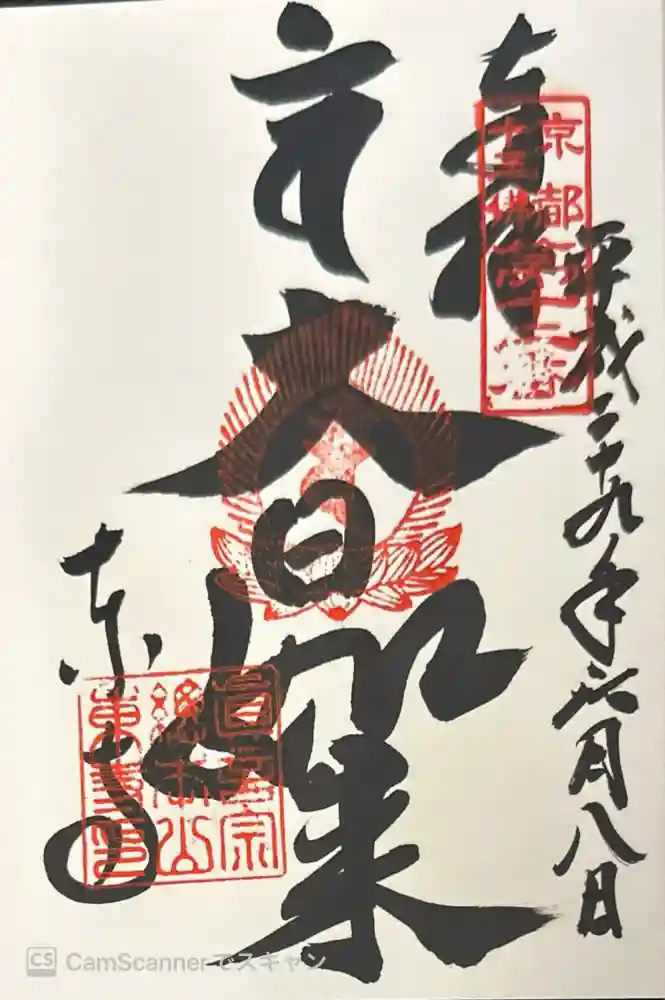 奉拝
京都
十三佛
第十二番
平成二十九年六月八日
大日如来
東寺
真言宗
總本山
東寺印
CS CamScannerでスキャン